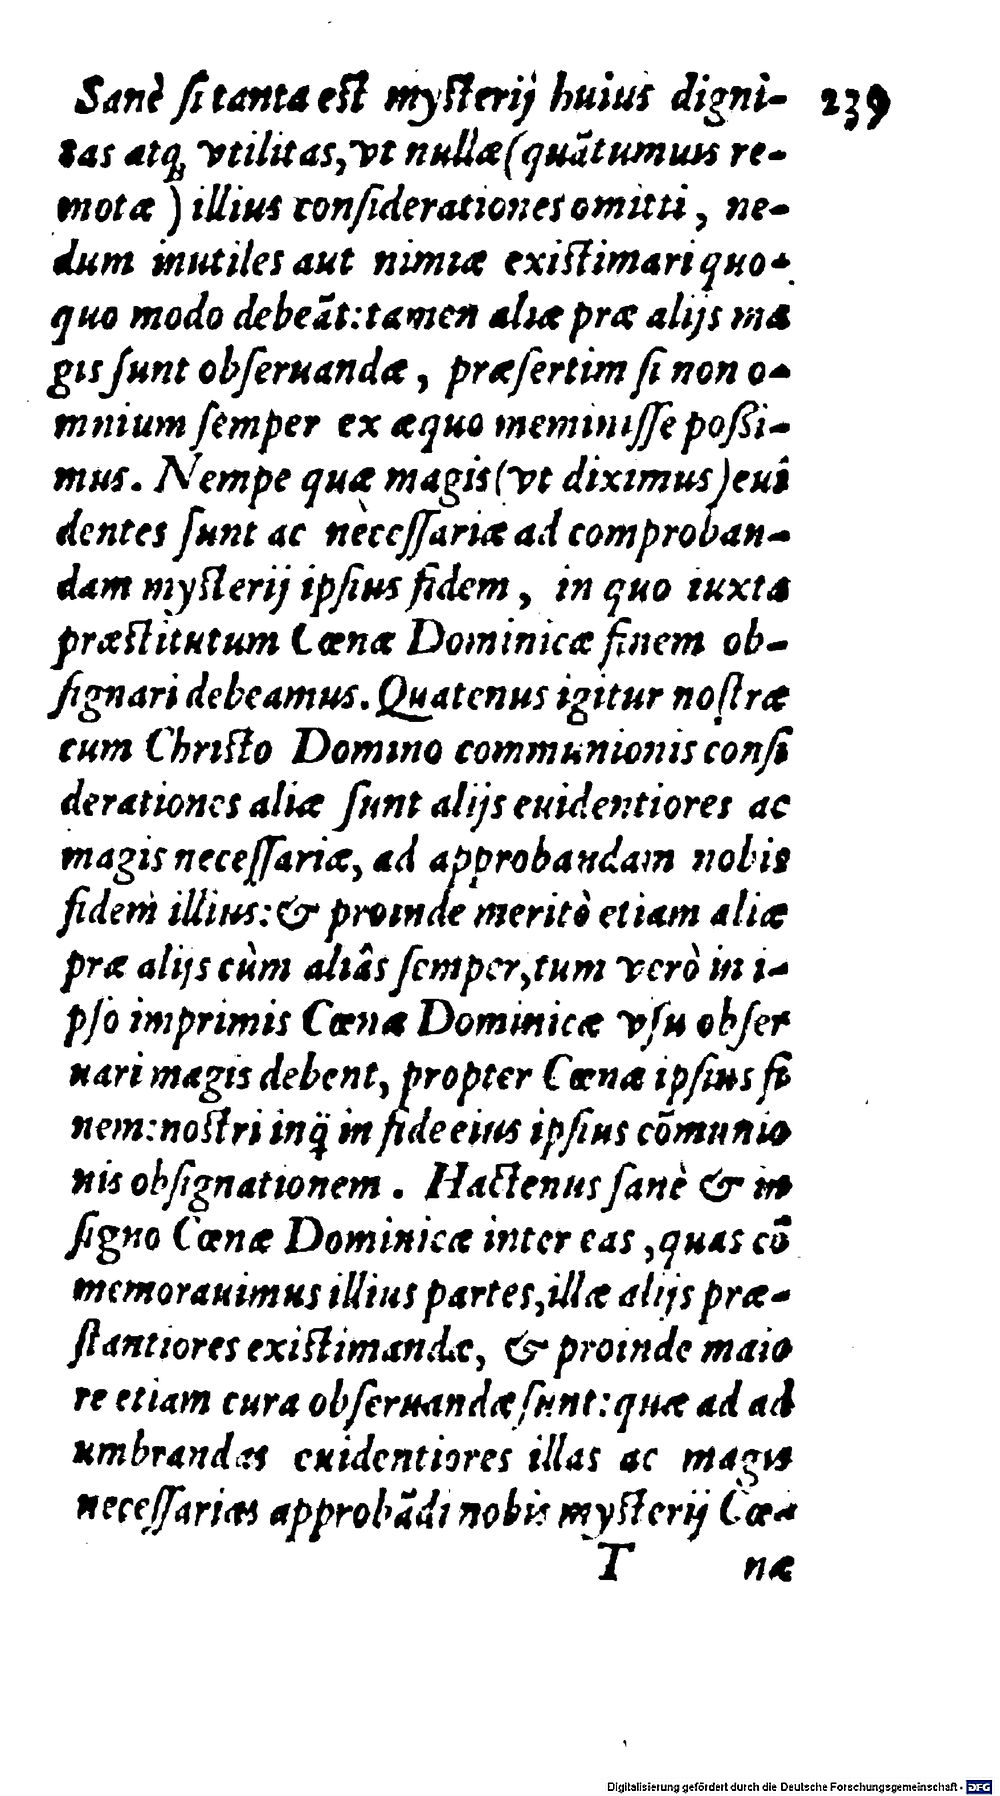 Sanè ſi tanta eſt myſterij huius digni- 239
tas atq; vtilitas, vt nullæ (quãtumuis re-
motæ) illius conſiderationes omitti, ne-
dum inutiles aut nimiæ exiſtimari quo-
quo modo debeãt: tamen aliæ præ alijs ma
gis ſunt obſeruandæ, præſertim ſi non o-
mnium ſemper ex æquo meminiſſe poßi-
mus. Nempe quæ magis (vt diximus) eui
dentes ſunt ac nèceſſariæ ad comproban-
dam myſterij ipſius fidem, in quo iuxta
præſtitutum Cœnæ Dominicæ finem ob-
ſignari debeamus. Quatenus igitur noſtræ
cum Chriſto Domino communionis conſi
derationes aliæ ſunt alijs euidentiores ac
magis neceſſariæ, ad approbandam nobis
fidem illius: & proinde meritò etiam aliæ
præ alijs cùm aliâs ſemper, tum verò in i-
pſo imprimis Cœnæ Dominicæ vſu obſer
uari magis debent, propter Cœnæ ipſius fi
nem: noſtri inq̃ in fide eius ipſius cõmunio
nis obſignationem. Hactenus ſanè & in
ſigno Cœnæ Dominicæ inter eas, quas cõ
memorauimus illius partes, illæ alijs præ-
ſtantiores exiſtimandæ, & proinde maio
re etiam cura obſeruandæ ſunt: quæ ad ad
umbrandas euidentiores illas ac magis
neceſſarias approbãdi nobis myſterij Cœ-
T næ
Digitalisierung gefördert durch die Deutsche Forschungsgemeinschaft - DFG